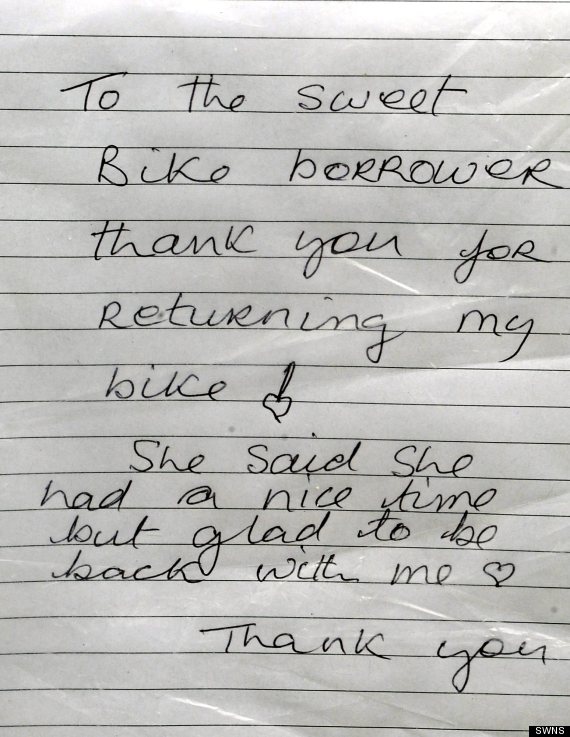 To the sweet
Bike borrower
thank you for
returning my
bike !
She said she
had a nice time
but glad to be
back with me ♡
Thank you
SWNS